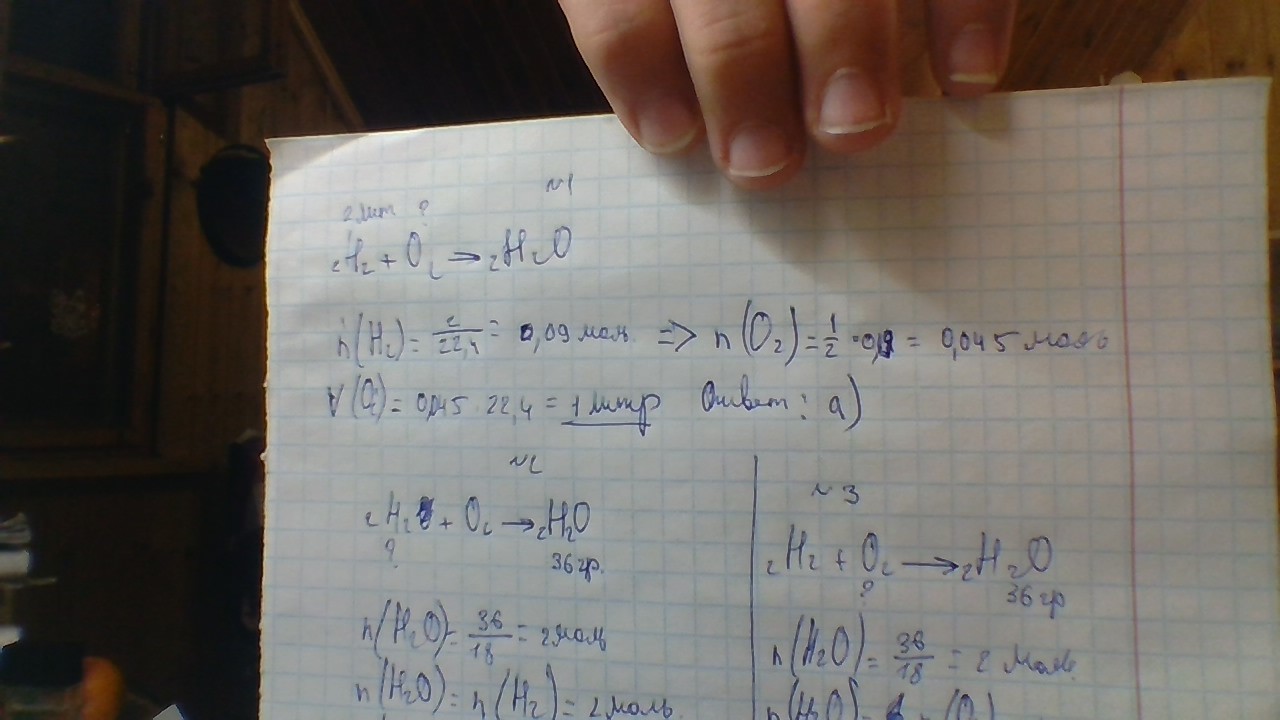 №1
2 лит ?
2H2 + O2 → 2H2O
n(H2) = 2/22,4 = 0,09 моль ⇒ n(O2) = 1/2 · 0,9 = 0,045 моль
V(O2) = 0,045 · 22,4 = 1 литр Ответ: а)
№2
2H2 + O2 → 2H2O
? 36 гр.
n(H2O) = 36/18 = 2 моль
n(H2O) = n(H2) = 2 моль
№3
2H2 + O2 → 2H2O
? 36 гр
n(H2O) = 36/18 = 2 моль
n(H2O) = (O2)